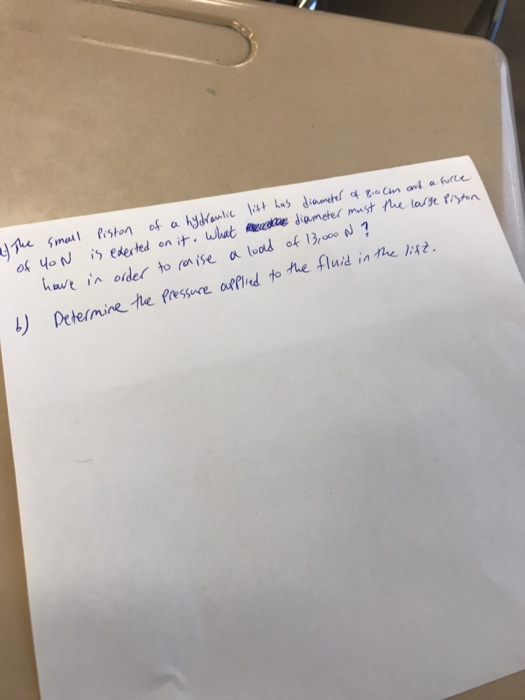 a) The small Piston of a hydraulic lift has diameter of 8.0cm and a force
of 40 N is exerted on it. What diameter must the large Piston
have in order to raise a load of 13,000 N ?
b) Determine the Pressure applied to the fluid in the lift.